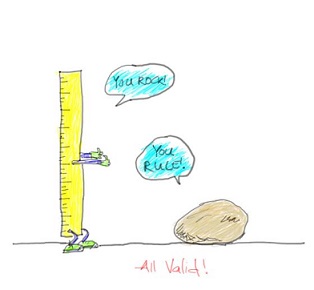 YOU ROCK!
YOU
RULE!
All Valid!